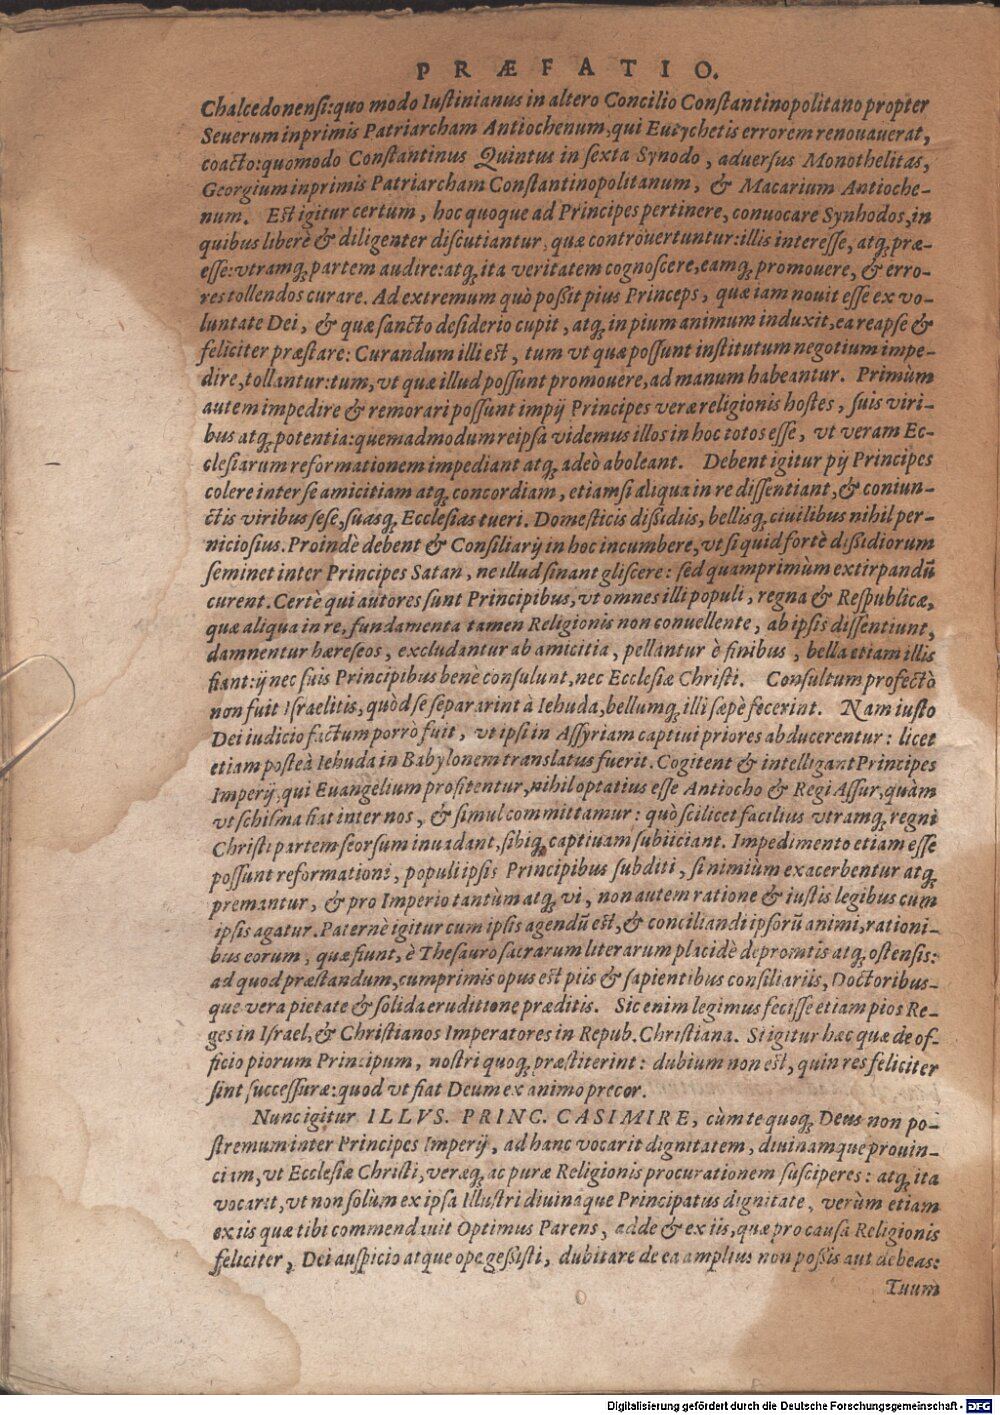 PRÆFATIO.
Chalcedonensi: quo modo Iustinianus in altero Concilio Constantinopolitano propter
Seuerum inprimis Patriarcham Antiochenum, qui Eutychetis errorem renouauerat,
coacto: quomodo Constantinus Quintus in sexta Synodo, aduersus Monothelitas,
Georgium inprimis Patriarcham Constantinopolitanum, & Macarium Antioche-
num. Est igitur certum, hoc quoque ad Principes pertinere, conuocare Synhodos, in
quibus liberè & diligenter discutiantur, quæ controuertuntur: illis interesse, atq; præ-
esse: vtramq; partem audire: atq; ita veritatem cognoscere, eamq; promouere, & erro-
res tollendos curare. Ad extremum quò possit pius Princeps, quæ iam nouit esse ex vo-
luntate Dei, & quæ sancto desiderio cupit, atq; in pium animum induxit, ea reapse &
feliciter præstare: Curandum illi est, tum vt quæ possunt institutum negotium impe-
dire, tollantur: tum, vt quæ illud possunt promouere, ad manum habeantur. Primùm
autem impedire & remorari possunt impij Principes veræ religionis hostes, suis viri-
bus atq; potentia: quemadmodum reipsa videmus illos in hoc totos esse, vt veram Ec-
clesiarum reformationem impediant atq; adeò aboleant. Debent igitur pij Principes
colere inter se amicitiam atq; concordiam, etiamsi aliqua in re dissentiant, & coniun-
ctis viribus sese, suasq; Ecclesias tueri. Domesticis dissidiis, bellisq; ciuilibus nihil per-
niciosius. Proindè debent & Consiliarij in hoc incumbere, vt si quid fortè dissidiorum
seminet inter Principes Satan, ne illud sinant gliscere: sed quamprimùm extirpandũ
curent. Certè qui autores sunt Principibus, vt omnes illi populi, regna & Respublicæ,
quæ aliqua in re, fundamenta tamen Religionis non conuellente, ab ipsis dissentiunt,
damnentur hæreseos, excludantur ab amicitia, pellantur è finibus, bella etiam illis
fiant: ij nec suis Principibus benè consulunt, nec Ecclesiæ Christi. Consultum profectò
non fuit Israelitis, quòd se separarint à Iehuda, bellumq; illi sæpè fecerint. Nam iusto
Dei iudicio factum porrò fuit, vt ipsi in Assyriam captiui priores abducerentur: licet
etiam posteà Iehuda in Babylonem translatus fuerit. Cogitent & intelligant Principes
Imperij, qui Euangelium profitentur, nihil optatius esse Antiocho & Regi Assur, quàm
vt schisma fiat inter nos, & simul committamur: quò scilicet facilius vtramq; regni
Christi partem seorsum inuadant, sibiq; captiuam subiiciant. Impedimento etiam esse
possunt reformationi, populi ipsis Principibus subditi, si nimiùm exacerbentur atq;
premantur, & pro Imperio tantùm atq; vi, non autem ratione & iustis legibus cum
ipsis agatur. Paternè igitur cum ipsis agendũ est, & conciliandi ipsorũ animi, rationi-
bus eorum, quæ fiunt, è Thesauro sacrarum literarum placidè depromtis atq; ostensis:
ad quod præstandum, cumprimis opus est piis & sapientibus consiliariis, Doctoribus-
que vera pietate & solida eruditione præditis. Sic enim legimus fecisse etiam pios Re-
ges in Israel, & Christianos Imperatores in Repub. Christiana. Si igitur hæc quæ de of-
ficio piorum Principum, nostri quoq; præstiterint: dubium non est, quin res feliciter
sint successuræ: quod vt fiat Deum ex animo precor.
Nunc igitur ILLVS. PRINC. CASIMIRE, cùm te quoq; Deus non po-
stremum inter Principes Imperij, ad hanc vocarit dignitatem, diuinamque prouin-
ciam, vt Ecclesiæ Christi, veræq; ac puræ Religionis procurationem susciperes: atq; ita
vocarit, vt non solùm ex ipsa Illustri diuinaque Principatus dignitate, verùm etiam
ex iis quæ tibi commendauit Optimus Parens, adde & ex iis, quæ pro causa Religionis
feliciter, Dei auspicio atque ope gessisti, dubitare de ea amplius non possis aut debeas:
Tuum
Digitalisierung gefördert durch die Deutsche Forschungsgemeinschaft - DFG